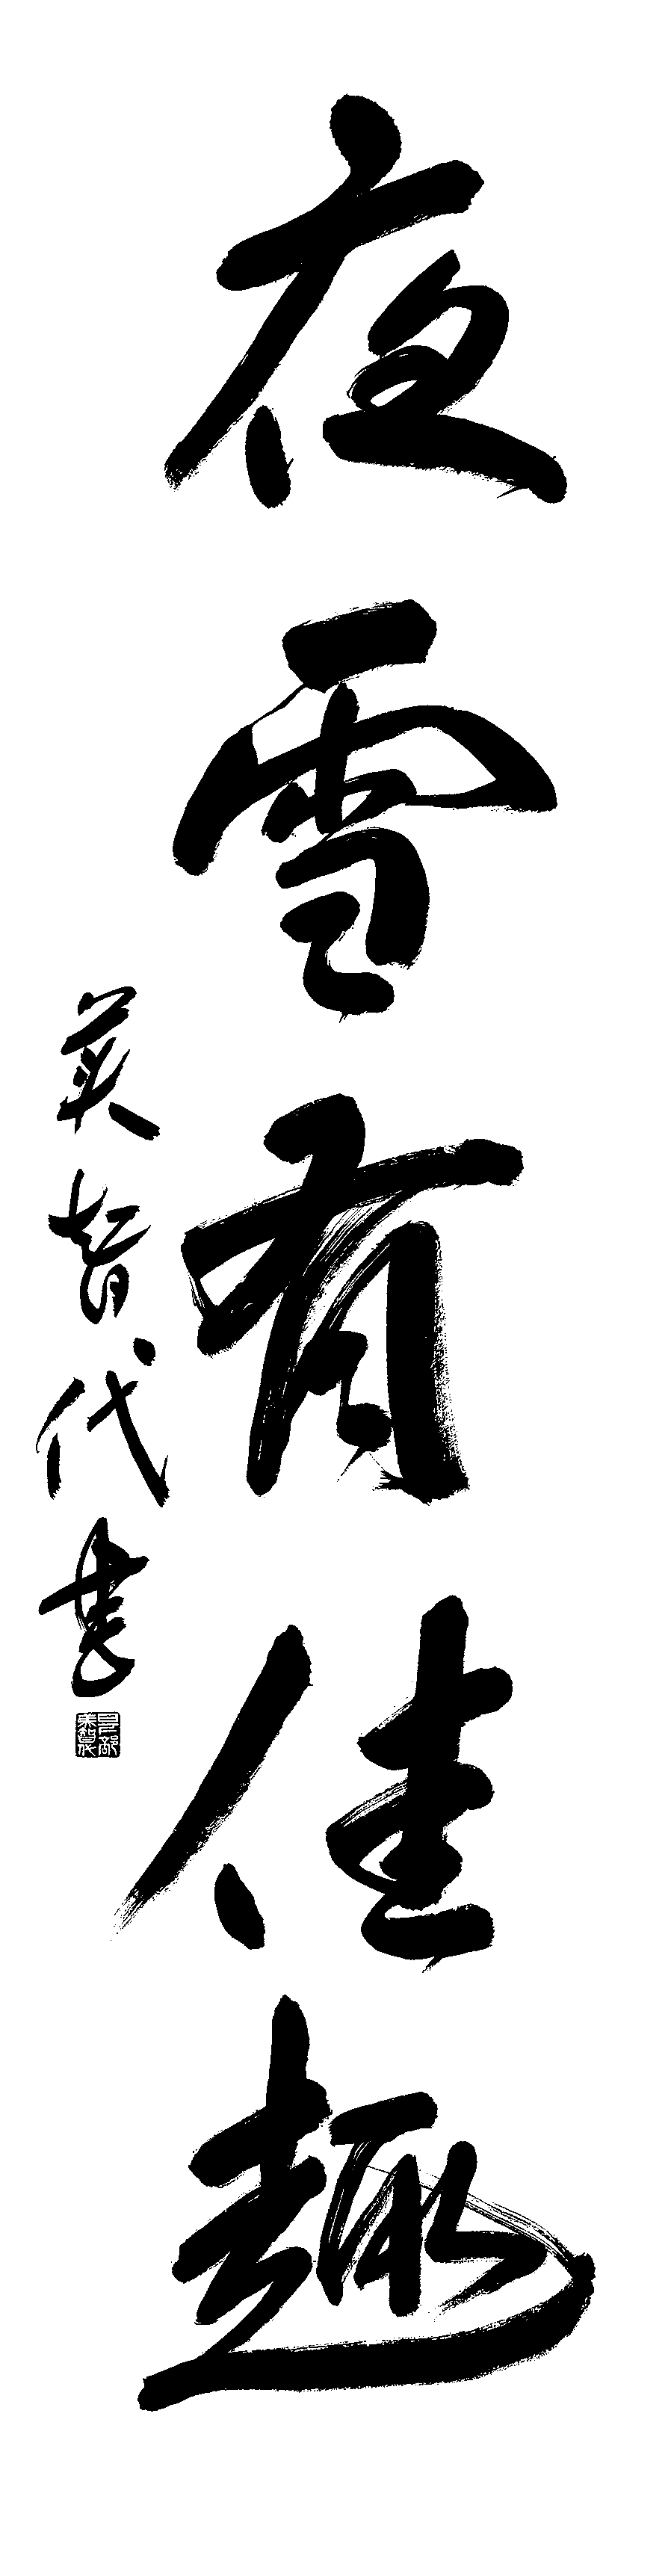 夜雪有佳趣
英智代書